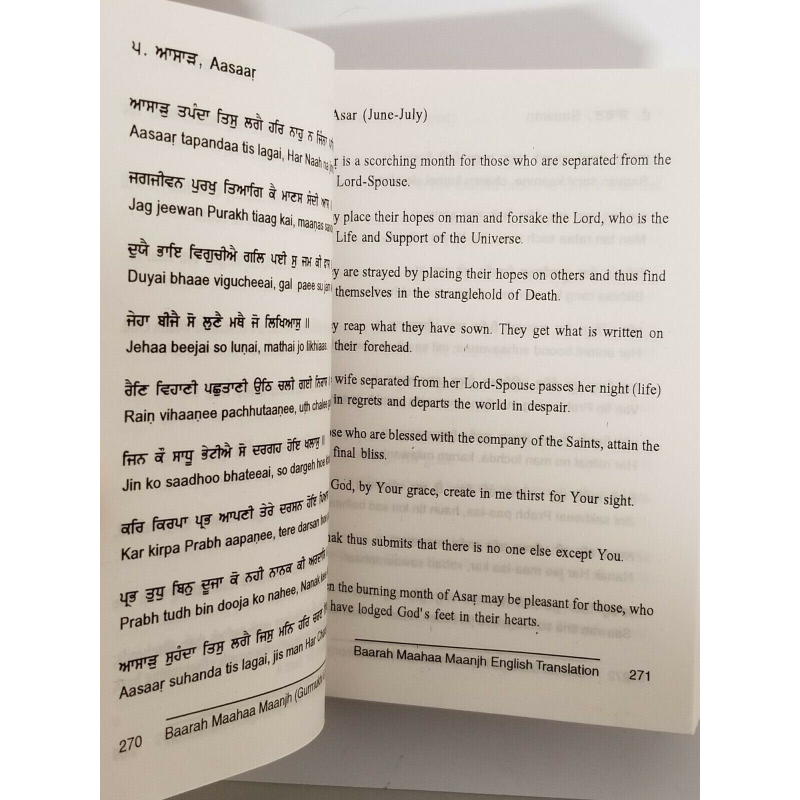 ੫. ਆਸਾੜ, Aasaaṛ
ਆਸਾੜੁ ਤਪੰਦਾ ਤਿਸੁ ਲਗੈ ਹਰਿ ਨਾਹੁ ਨ ਜਿੰਨਾ
Aasaaṛ tapandaa tis lagai, Har Naah na
ਜਗਜੀਵਨ ਪੁਰਖੁ ਤਿਆਗਿ ਕੈ ਮਾਣਸ ਸੰਦੀ ਆਸ
Jag jeewan Purakh tiaag kai, maaṇas
ਦੁਯੈ ਭਾਇ ਵਿਗੁਚੀਐ ਗਲਿ ਪਈ ਸੁ ਜਮ ਕੀ
Duyai bhaae vigucheeai, gal paee su
ਜੇਹਾ ਬੀਜੈ ਸੋ ਲੁਣੈ ਮਥੈ ਜੋ ਲਿਖਿਆਸੁ ॥
Jehaa beejai so luṇai, mathai jo likhiaas
ਰੈਣਿ ਵਿਹਾਣੀ ਪਛੁਤਾਣੀ ਉਠਿ ਚਲੀ ਗਈ ਨਿਰਾਸ
Raiṇ vihaaṇee pachhutaaṇee, uṭh chalee
ਜਿਨ ਕੌ ਸਾਧੂ ਭੇਟੀਐ ਸੋ ਦਰਗਹ ਹੋਇ ਖਲਾਸੁ ॥
Jin ko saadhoo bhateeai, so dargeh hoe
ਕਰਿ ਕਿਰਪਾ ਪ੍ਰਭ ਆਪਣੀ ਤੇਰੇ ਦਰਸਨ ਹੋਇ
Kar kirpa Prabh aapaṇee, tere darsan
ਪ੍ਰਭ ਤੁਧੁ ਬਿਨੁ ਦੂਜਾ ਕੋ ਨਹੀ ਨਾਨਕ ਕੀ
Prabh tudh bin dooja ko nahee, Nanak
ਆਸਾੜੁ ਸੁਹੰਦਾ ਤਿਸੁ ਲਗੈ ਜਿਸੁ ਮਨਿ ਹਰਿ ਚਰਣ
Aasaaṛ suhanda tis lagai, jis man Har
270 Baarah Maahaa Maanjh (Gurmukhi
Asar (June-July)
r is a scorching month for those who are separated from the
Lord-Spouse.
y place their hopes on man and forsake the Lord, who is the
Life and Support of the Universe.
y are strayed by placing their hopes on others and thus find
themselves in the stranglehold of Death.
y reap what they have sown. They get what is written on
their forehead.
wife separated from her Lord-Spouse passes her night (life)
in regrets and departs the world in despair.
ose who are blessed with the company of the Saints, attain the
final bliss.
God, by Your grace, create in me thirst for Your sight.
nak thus submits that there is no one else except You.
n the burning month of Asaṛ may be pleasant for those, who
have lodged God's feet in their hearts.
Baarah Maahaa Maanjh English Translation 271